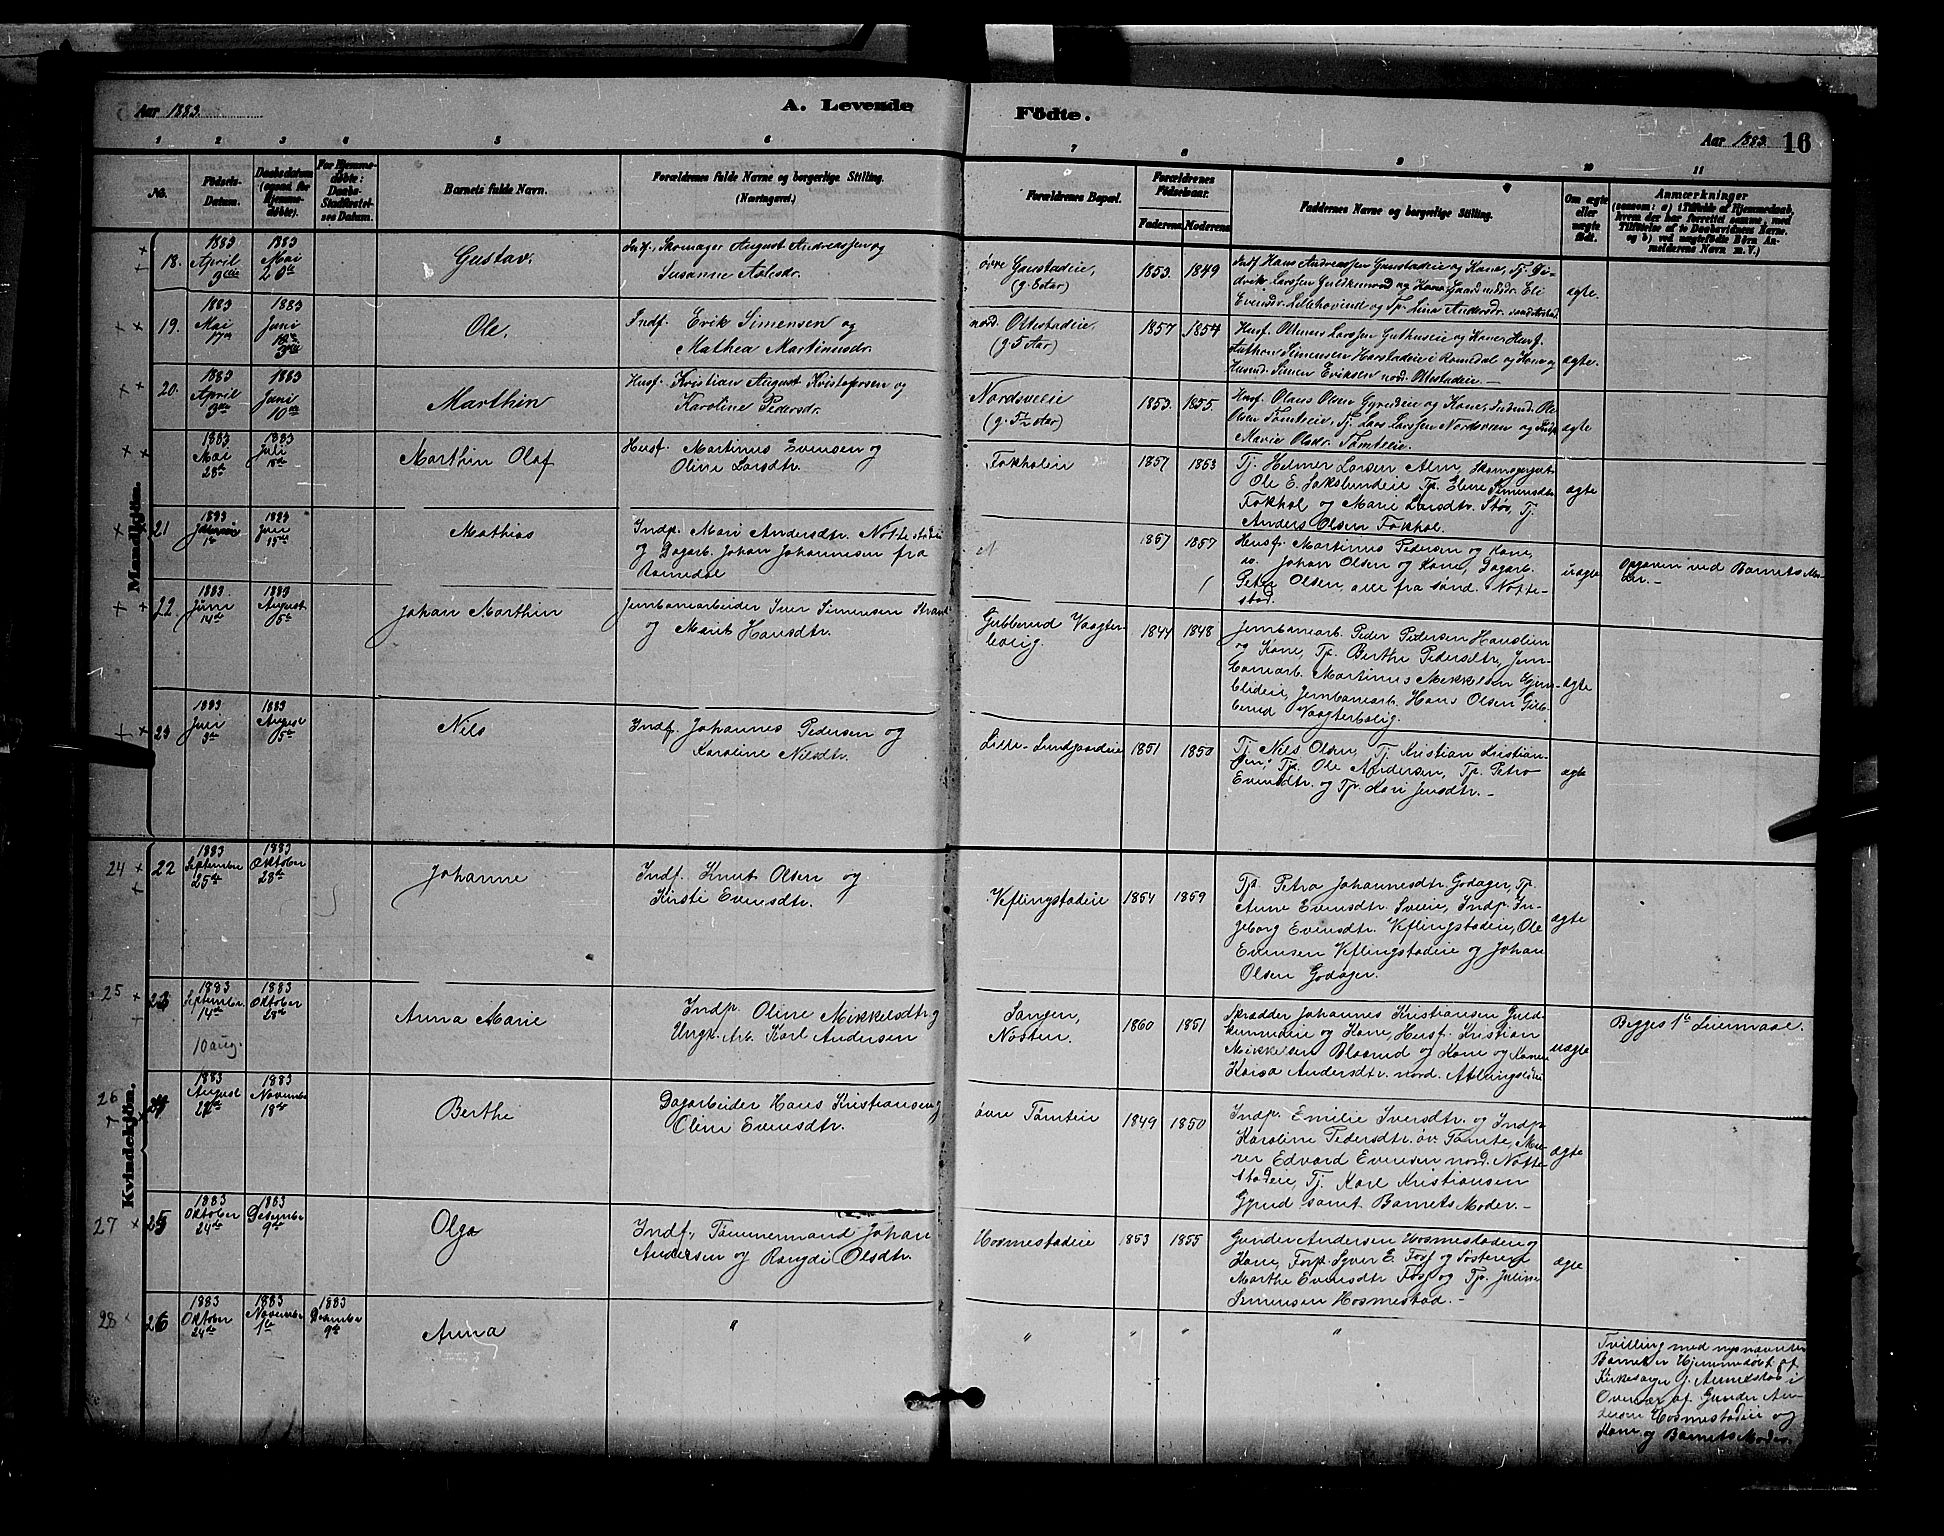 Aar 1883.
A. Levende
Födte.
Aar 1883. 16
1 2 3 4 5 6 7 8 9 10 11
No.
Födsels-
Datum.
Daabsdatum
(ogsaa for
Hjemme-
döbte).
For Hjemme-
döbte:
Daabs-
Stadfæstel-
ses Datum.
Barnets fulde Navn.
Forældrenes fulde Navne og borgerlige Stilling.
(Næringsvei.)
Forældrenes Bopæl.
Forældrenes
Födselsaar.
Faderens. Moderens.
Faddernes Navne og borgerlige Stilling.
Om ægte
eller
uægte
födt.
Anmærkninger
(saasom: a) i Tilfælde af Hjemmedaab,
hvem der har forrettet samme, med
Tilföielse af to Daabsvidners Navne.
og b) ved uægtefödte Börn An-
melderens Navn m. V.)
Mandkjön.
18.
1883
April
3die
1883
Mai
20de
Gustav.
Indf., Skomager August Andreassen og
Susanne Adolfsdr.
övre Gaustadeie,
(g. 8 Aar)
1853. 1849
Indf. Hans Andreassen Gaustadeie og Kone, Tj. Di-
drik Larssen Guldkunrud og Kone
Evensdr. Lillehovind og Tp. Lina Andersdr.
ægte.
19.
1883
Mai
17de
1883
Juni
Ole.
Indf. Erik Simensen og
Mathea Martinusdr.
nord. Ottestadeie
(g. 5 Aar)
1857 1854
Husf. Oltenus Larssen Guthuseie og Kone, Husf.
Anthon Simensen Horstadeie i Romedal og Kone og
Husmd. Simen Eriksen nord. Ottestadeie.—
ægte.
20.
1883
April
3die
1883
Juni
10de
Marthin
Husf. Kristian August Kristofersen og
Karoline Pedersdr.
Nordsveeie
(g. 5½ Aar)
1853. 1855.
Husf. Olaus Olsen Gyrudeie og Kone, Ole
Olsen Tomteeie, Tj. Lars Larssen Nordsveen og Indp.
Marie Olsdr. Tomteeie.
ægte
1883
Mai
28de
1883
Juli
Marthin Olaf
Husf. Martinus Evensen og
Oline Larsdtr.
Fokholeie
1857 1853
Tj. Helmer Larsen Alm,
Ole E. Lakslundeie Tp. Eline Simensdtr.
Fokhol og Marie Larsdtr. Stör, Tj.
Anders Olsen Fokhol.
ægte
21
1883
1883
Juli
15de
Mathias
Indp. Mari Andersdtr. Nottestadeie
og Dagarb. Johan Johannesen fra
Romedal
1857 1857
Husf. Martinus Pedersen og Kone,
do. Johan Olsen og Kone, Dagarb.
Peter Olsen, alle fra sönd. Notte-
stad.
uægte
Opgaven ved Barnets Mo-
der.—
22
1883
Juni
14de
1883
August
5te
Johan Marthin
Jernbanearbeider Iver Simensen Strand
og Marit Hansdtr.
Gubberud Vaagter-
bolig.
1844 1848
Jernbanearb. Peder Pedersen Hauslien
og Kone, Tp. Berthe Pedersdtr, Jern-
banearb. Martinus Mikkelsen Gjem-
blideie, Jernbanearb. Hans Olsen Gub-
berud Vaagterbolig.
ægte
23
1883
Juli
3de
1883
August
5te
Nils
Indf. Johannes Pedersen og
Karoline Nilsdtr.
Lille-Lundgaardeie
1851 1850
Tj. Nils Olsen, Tj. Kristian Kristian-
sen, Tp. Ole Andersen, Tp. Petra
Evensdtr. og Tp. Kari Jensdtr.—
ægte
Kvindekjön.
24 22
1883
September
25de
1883
Oktober
28de
Johanne
Indf. Knut Olsen og
Kirsti Evensdtr.
Veflingstadeie
1854 1859
Tp. Petra Johannesdtr. Godager, Tp.
Anne Evensdtr. Sveeie, Indp. In-
geborg Evensdtr. Veflingstadeie, Ole
Evensen Veflingstadeie og Johan
Olsen Godager.
ægte
25 23
1883
September
14de
10 aug.
1883
Oktober
28de
Anna Marie
Indp. Oline Mikkelsdtr og
Ungk. Arb. Karl Andersen
Sangen,
Nosten.
1860 1851
Skrædder Johannes Kristiansen Guld-
kunrudeie og Kone, Husf. Kristian
Mikkelsen Blaarud og Kone og Konen
Karen Andersdtr. nord.
uægte
Begges 1te Leiermaal.
26 24
1883
August
1883
November
18de
Berthe
Dagarbeider Hans Kristiansen og
Oline Evensdtr.
övre Tomteie
1849 1850
Indp. Emilie Iversdtr. og Indp.
Karoline Pedersdtr. öv. Tomte, Mu-
rer Edvard Evensen nord. Notte-
stadeie, Tj. Karl Kristiansen
Gyrud samt Barnets Moder.—
ægte
27 25
1883
Oktober
24de
1883
Desember
9de
Olga
Indf., Tömmermand Johan
Andersen og Rangdi Olsdtr.
Hosmestadeie
1853 1855
Gunder Andersen Hosmestadeie og
Kone, Forp. Syver E. Foss og Sösteren
Marthe Evensdtr Foss og Tp. Juline
Simensen Hosmestad.—
ægte
28 26
1883
Oktober
24de
1883
November
1ste
1883
Desember
9de
Anna
"
" " " "
Tvilling med nysnævnte
Barnet er Hjemmedöbt af
Kirkesanger J. Aarnestad i
Overvær af Gunder An-
dersen Hosmestadeie og
Kone og Barnets Moder.